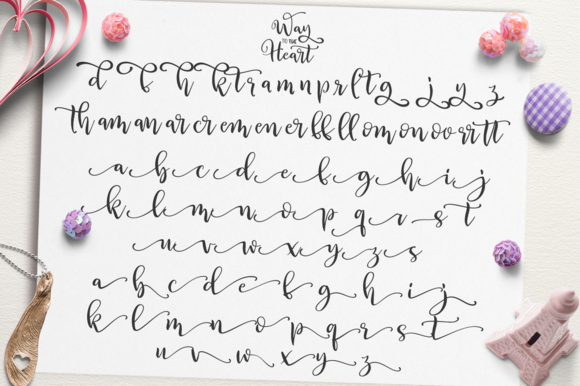 Way
to the
Heart
d b h k t r a m n p r l t g j y z
th am an ar cr em en er ff ll om on oo rr tt
a b c d e f g h i j
k l m n o p q r s t
u v w x y z s
a b c d e f g h i j
k l m n o p q r s t
u v w x y z